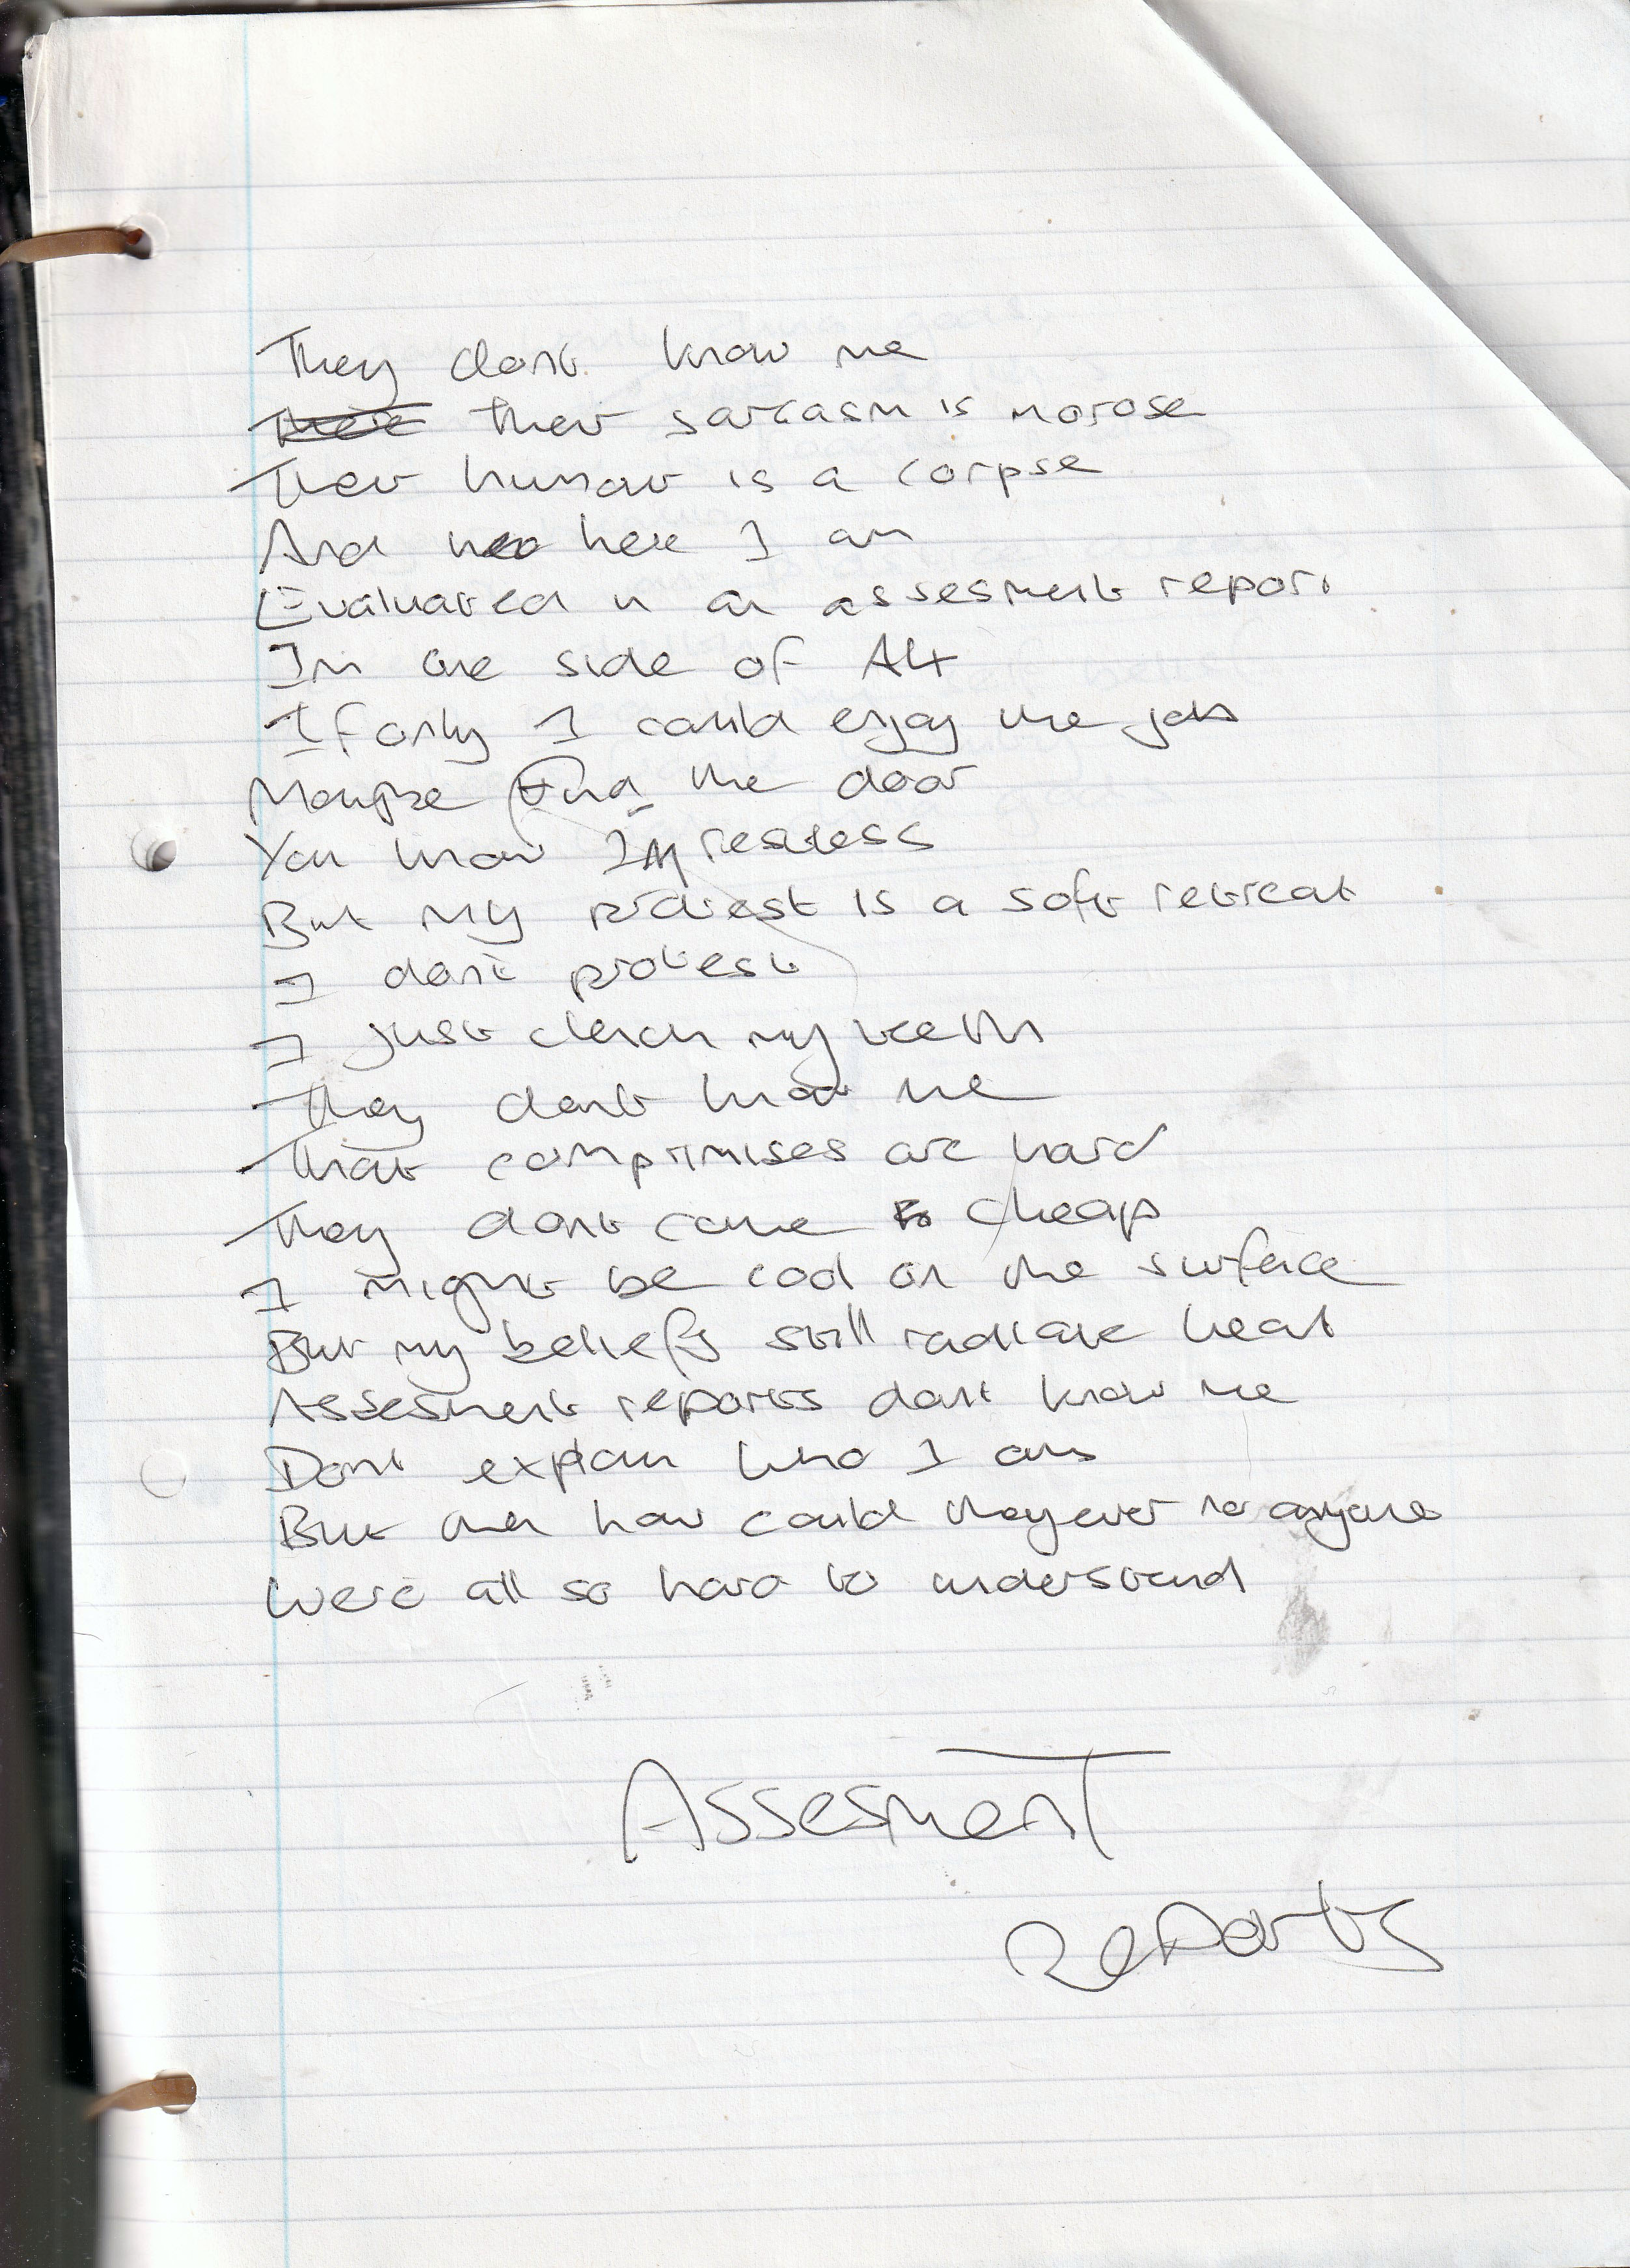 They dont know me
Their sarcasm is morose
Their humour is a corpse
And here I am
Evaluated in an assesment report
In one side of A4
If only I could enjoy the job
Maybe find the door
You know Im restless
But my protest is a soft retreat
I dont protest
I just clench my teeth
They dont know me
That comprimises are hard
They dont come cheap
I might be cool on the surface
But my beliefs still radiate heat
Assesment reports dont know me
Dont explain who I am
But then how could they ever no anyone
Were all so hard to understand
Assesment
Reports